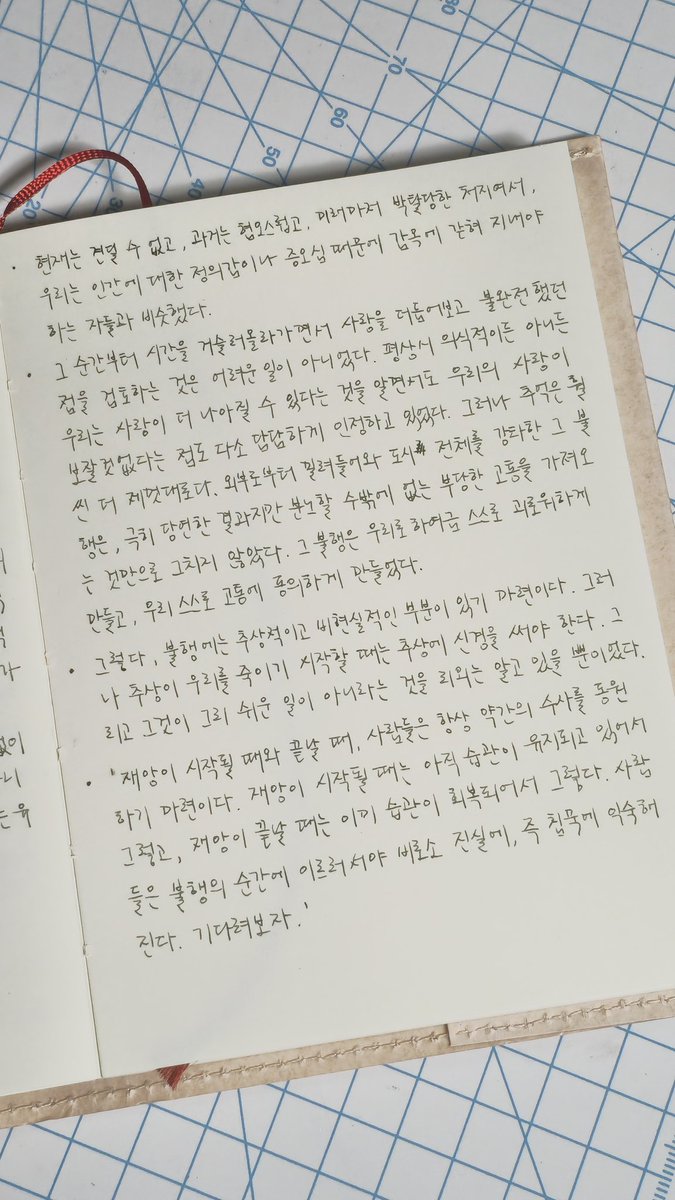 80
70
60
50
40
20
· 현재는 견딜 수 없고, 과거는 혐오스럽고, 미래마저 박탈당한 처지여서,
우리는 인간에 대한 정의감이나 증오심 때문에 감옥에 갇혀 지내야
하는 자들과 비슷했다.
· 그 순간부터 시간을 거슬러올라가면서 사랑을 더듬어보고 불완전했던
점을 검토하는 것은 어려운 일이 아니었다. 평상시 의식적이든 아니든
우리는 사랑이 더 나아질 수 있다는 것을 알면서도 우리의 사랑이
보잘것없다는 점도 다소 담담하게 인정하고 있었다. 그러나 추억은 훨
씬 더 제멋대로다. 외부로부터 밀려들어와 도시 전체를 강타한 그 불
행은, 극히 당연한 결과지만 분노할 수밖에 없는 부당한 고통을 가져오
는 것만으로 그치지 않았다. 그 불행은 우리로 하여금 스스로 괴로워하게
만들고, 우리 스스로 고통에 동의하게 만들었다.
· 그렇다, 불행에는 추상적이고 비현실적인 부분이 있기 마련이다. 그러
나 추상이 우리를 죽이기 시작할 때는 추상에 신경을 써야 한다. 그
리고 그것이 그리 쉬운 일이 아니라는 것을 리외는 알고 있을 뿐이었다.
· '재앙이 시작될 때와 끝날 때, 사람들은 항상 약간의 수사를 동원
하기 마련이다. 재앙이 시작될 때는 아직 습관이 유지되고 있어서
그렇고, 재앙이 끝날 때는 이미 습관이 회복되어서 그렇다. 사람
들은 불행의 순간에 이르러서야 비로소 진실에, 즉 침묵에 익숙해
진다. 기다려보자.'